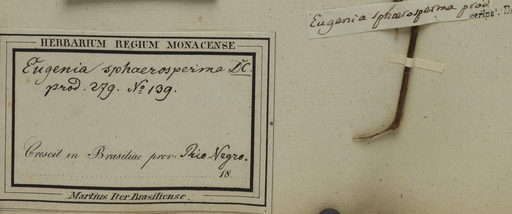 Eugenia sphaerosperma prod
script. D
HERBARIUM REGIUM MONACENSE
Eugenia sphaerosperma DC.
prod. 279. No 139.
Crescit in Brasiliae prov. Rio Negro.
18
Martius Iter Brasiliense.